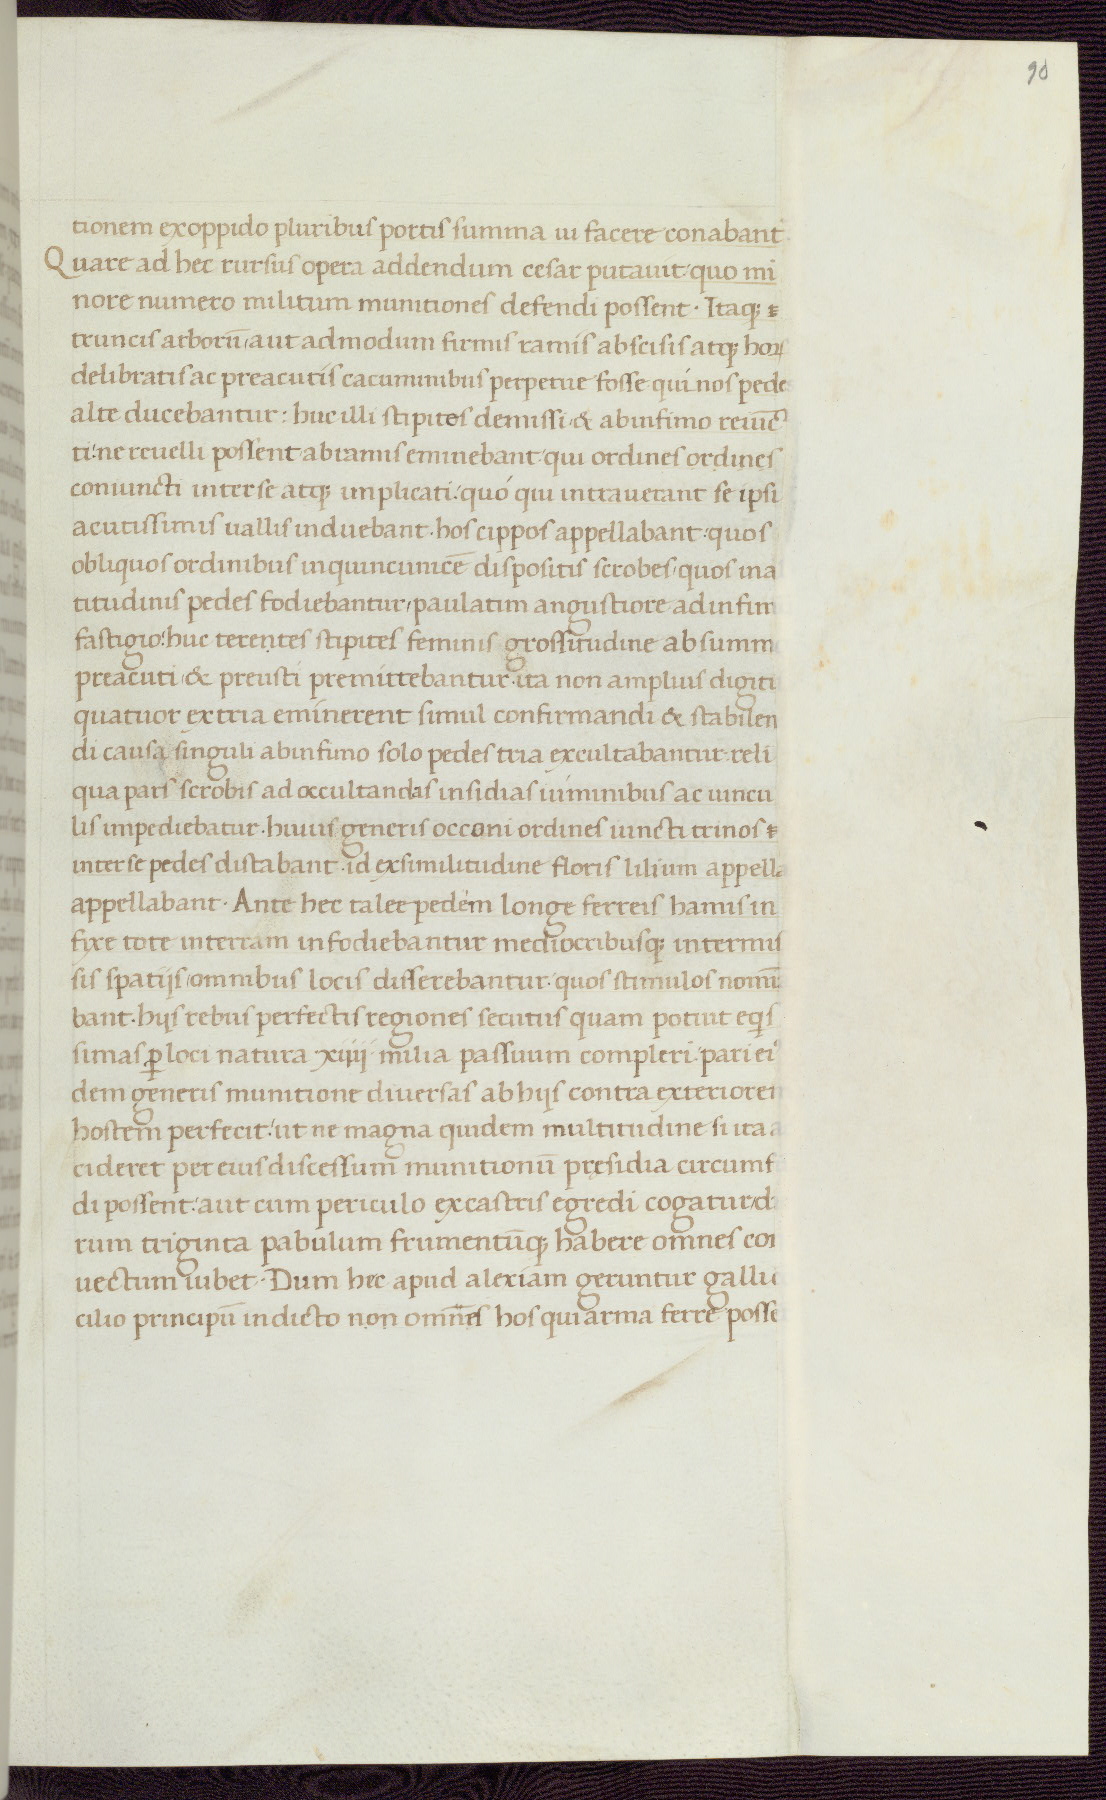 90
tionem exoppido pluribus portis summa ui facere conabant᷑
Quare ad hec rursus opera addendum cesar putauit quo mi
nore numero militum munitiones defendi possent · Itaqꝫ
truncis arborū aut admodum firmis ramis abscisis atqꝫ horꝝ
delibratis ac preacutis cacuminibus perpetue fosse qui nos pede
alte ducebantur : huc illi stipites demissi & abinfimo reiūc
ti ne reuelli possent abramis eminebant qui ordines ordines
coniuncti inter se atqꝫ implicati quó qui intrauerant se ipsi
acutissimis uallis induebant · hos cippos appellabant quos
obliquos ordinibus inquincunicē dispositis scrobes quos ina
titudinis pedes fodiebantur paulatim angustiore adinfim
fastigio huc terentes stipites feminis grossitudine absumm
preacuti & preusti premittebantur ita non amplius digiti
quatuor extria eminerent simul confirmandi & stabilen
di causa singuli abinfimo solo pedes tria excultabantur reli
qua pars scrobis ad occultandas insidias uiminibus ac uincu
lis impediebatur · huius generis occoni ordines iuncti trinos
inter se pedes distabant id exsimilitudine floris lilium appella
appellabant · Ante hec talee pedem longe ferreis hamis in
fixe tote interram infodiebantur mediocribusqꝫ intermis
sis spatijs omnibus locis disserebantur quos stimulos nomi
bant · hijs rebus perfectis regiones secutus quam potuit eqis
simas ꝑ loci natura xiiij milia passuum compleri pari ei
dem generis munitione diuersas ab hijs contra exteriorem
hostem perfecit ut ne magna quidem multitudine si ita a
cideret per eius discessum munitionū presidia circumf
di possent aut cum periculo excastris egredi cogatur d
rum triginta pabulum frumentūqꝫ habere omnes con
uectum iubet · Dum hec apud alexiam geruntur gallic
cilio principū indicto non omnes hos qui arma ferre posse